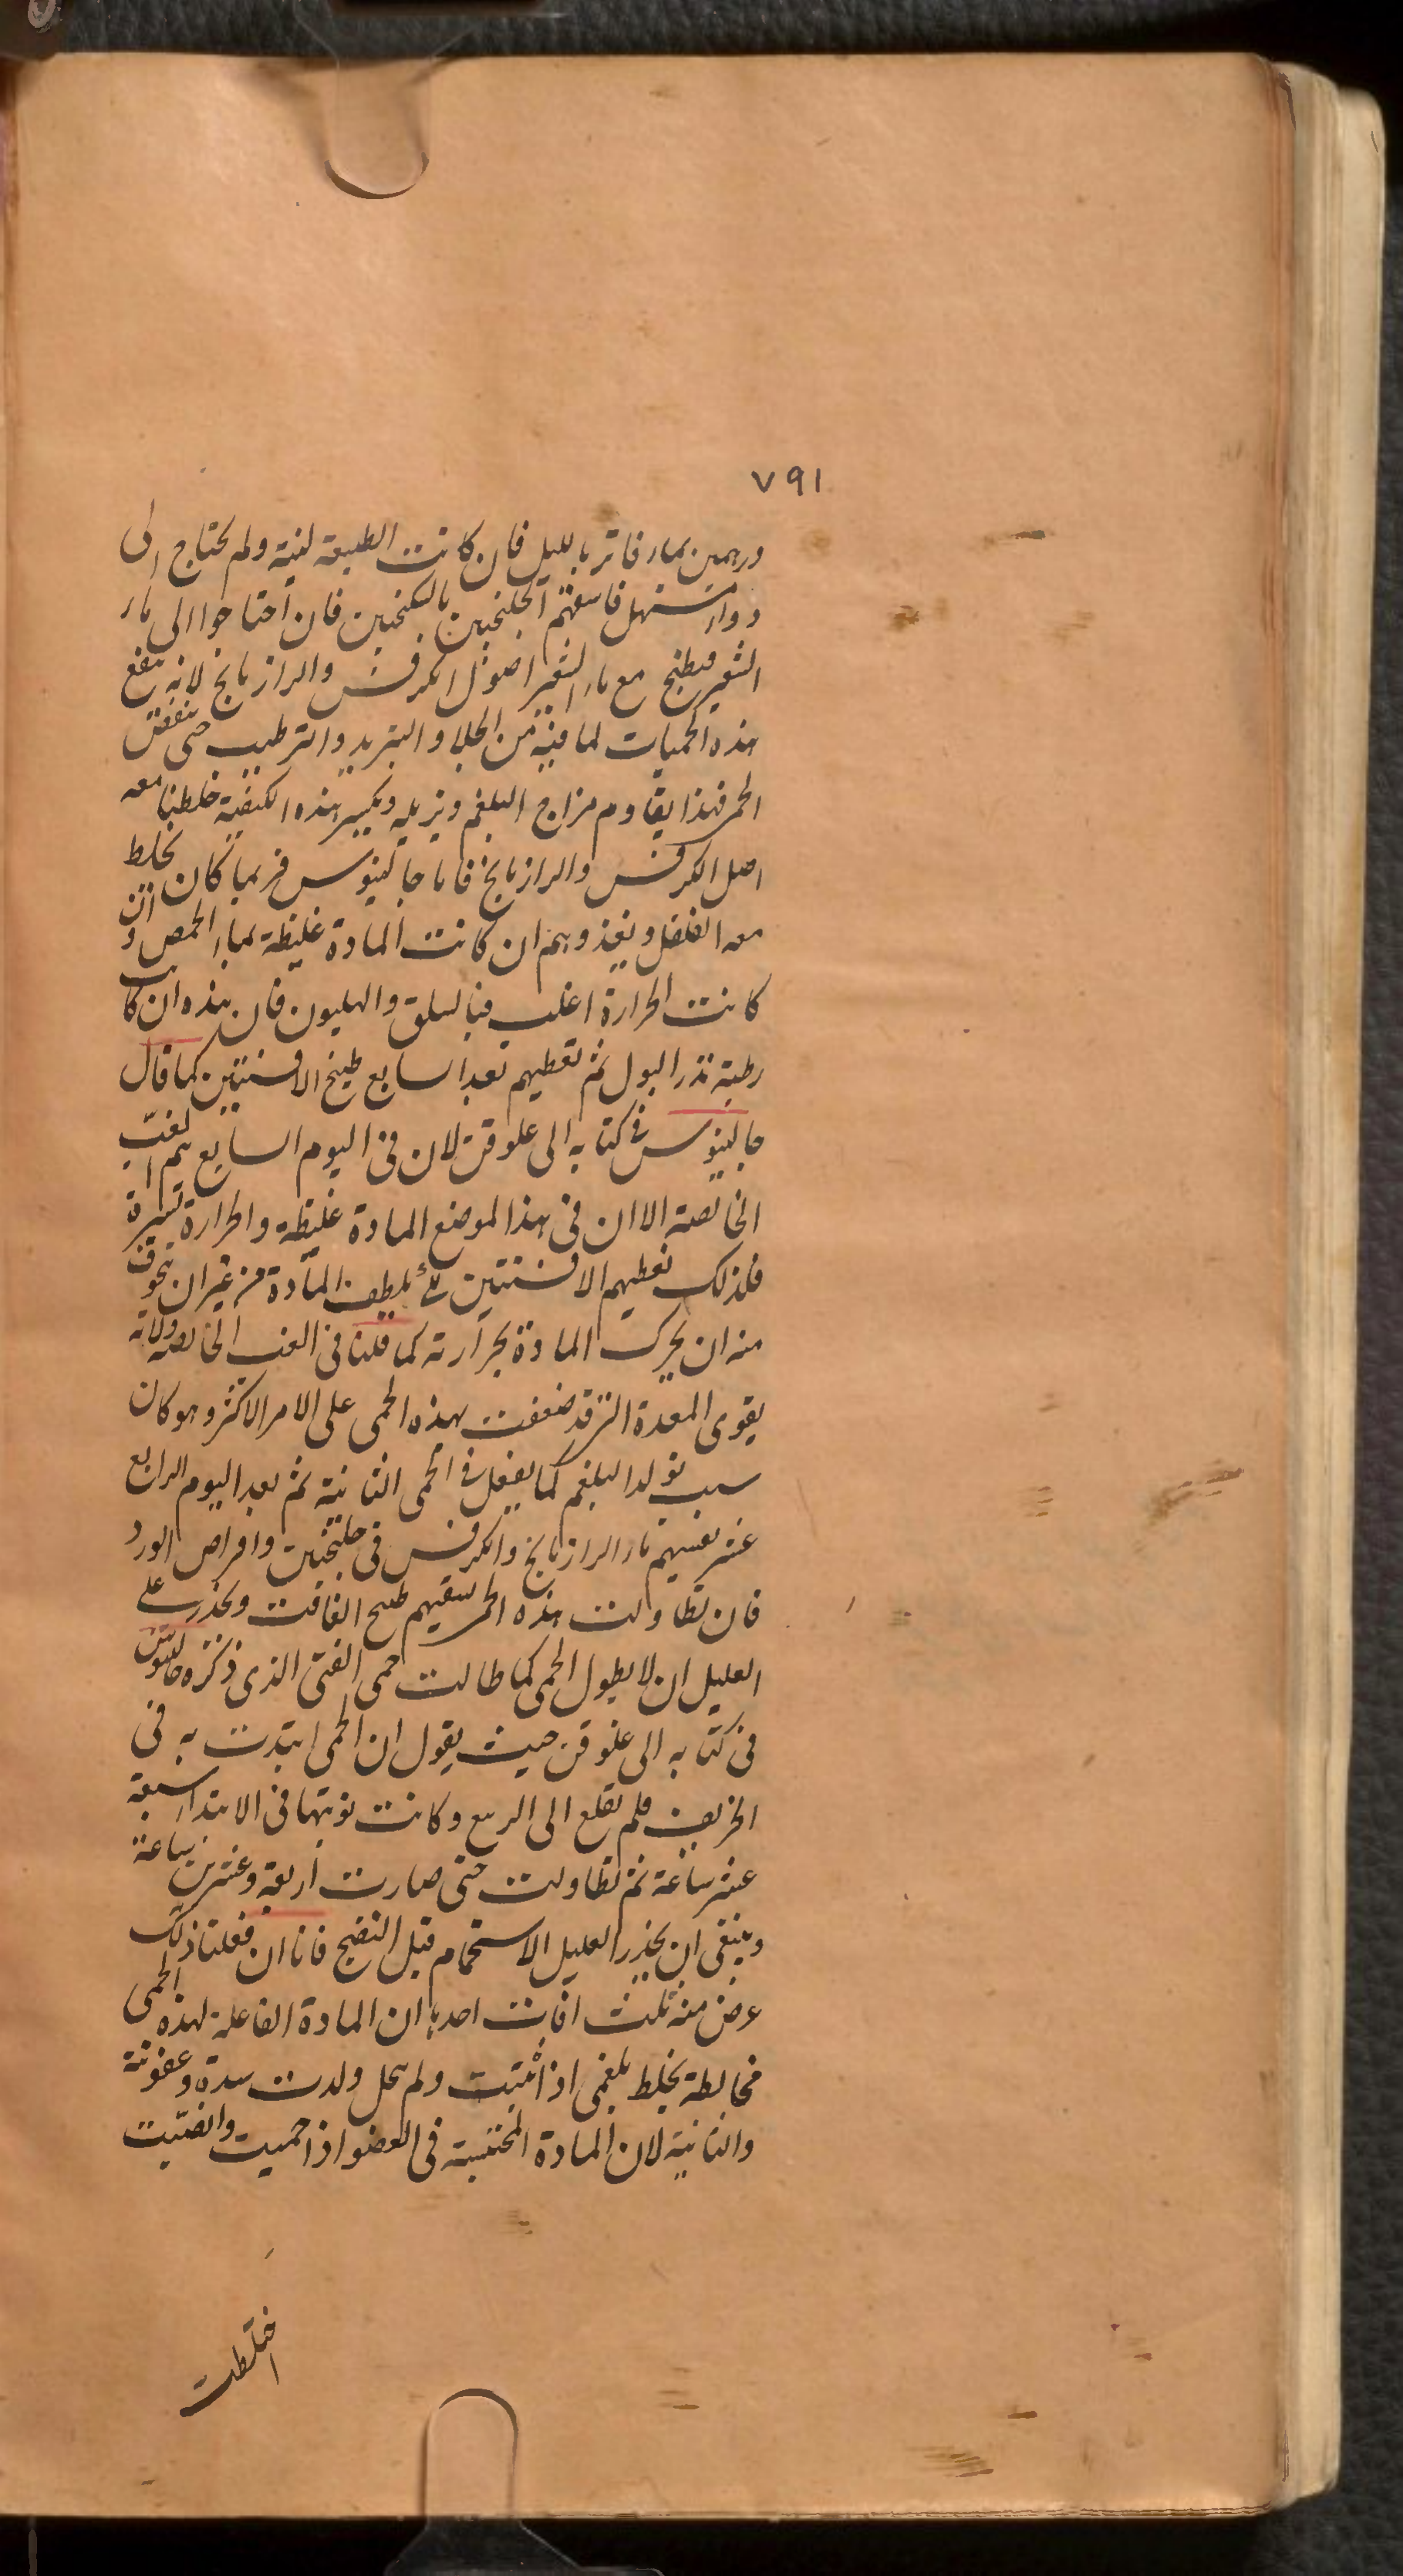 ٧٩١
درهمين بماء فاتر بالليل فان كانت الطبيعة لينة ولم يحتاج الى
دواء مسهل فاسقهم الجلنجبين بالسكنجبين فان احتاجوا الى ماء
الشعير فيطبخ مع ماء الشعير اصول الكرفس والرازيانج لانه ينفع
هذه الحميات لما فيه من الجلا والتبريد والترطيب حتى
الحر فهذا يقاوم مزاج البلغم ويزيله ويكسر هذه الكيفية خلطنا معه
اصل الكرفس والرازيانج فاما جالينوس فربما كان يخلط
معه الفلفل ويغذوهم ان كانت المادة غليظة بماء الحمص وان
كانت الحرارة اغلب فبالسلق والهليون فان هذه ان كانت
رطبة تدر البول ثم نعطيهم بعد السابع طبيخ الافسنتين كما قال
جالينوس فى كتابه الى علوقن لان فى اليوم السابع يتم الغب
الخالصة الا ان فى هذا الموضع المادة غليظة والحرارة يسيرة
فلذلك نعطيهم الافسنتين لتلطيف المادة من غير ان نخوف
منه ان يحرك المادة بحرارته كما قلنا فى الغب الخالصة ولانه
يقوى المعدة التى قد ضعفت بهذه الحمى على الامر الاكثر وهو كان
سبب تولد البلغم كما يفعل فى الحمى النائبة ثم بعد اليوم الرابع
عشر نسقيهم ماء الرازيانج والكرفس فى جلنجبين واقراص الورد
فان تطاولت هذه الحمى نسقيهم طبيخ الغافت ونحذر على
العليل ان لا يطول الحمى كما طالت حمى الفتى الذى ذكره جالينوس
فى كتابه الى علوقن حيث يقول ان الحمى ابتدت به فى
الخريف فلم تقلع الى الربيع وكانت نوبتها فى الابتداء سبعة
عشر ساعة ثم تطاولت حتى صارت اربعة وعشرين ساعة
وينبغى ان يحذر العليل الاستحمام قبل النضج فانا ان فعلنا ذلك
عرض منه ثلث افات احدها ان المادة الفاعلة لهذه الحمى
مخالطة بخلط بلغمى اذا ولم يحل ولدت سدة وعفونة
والثانية لان المادة المحتبسة فى العضو اذا حميت وانصبت
اختلطت